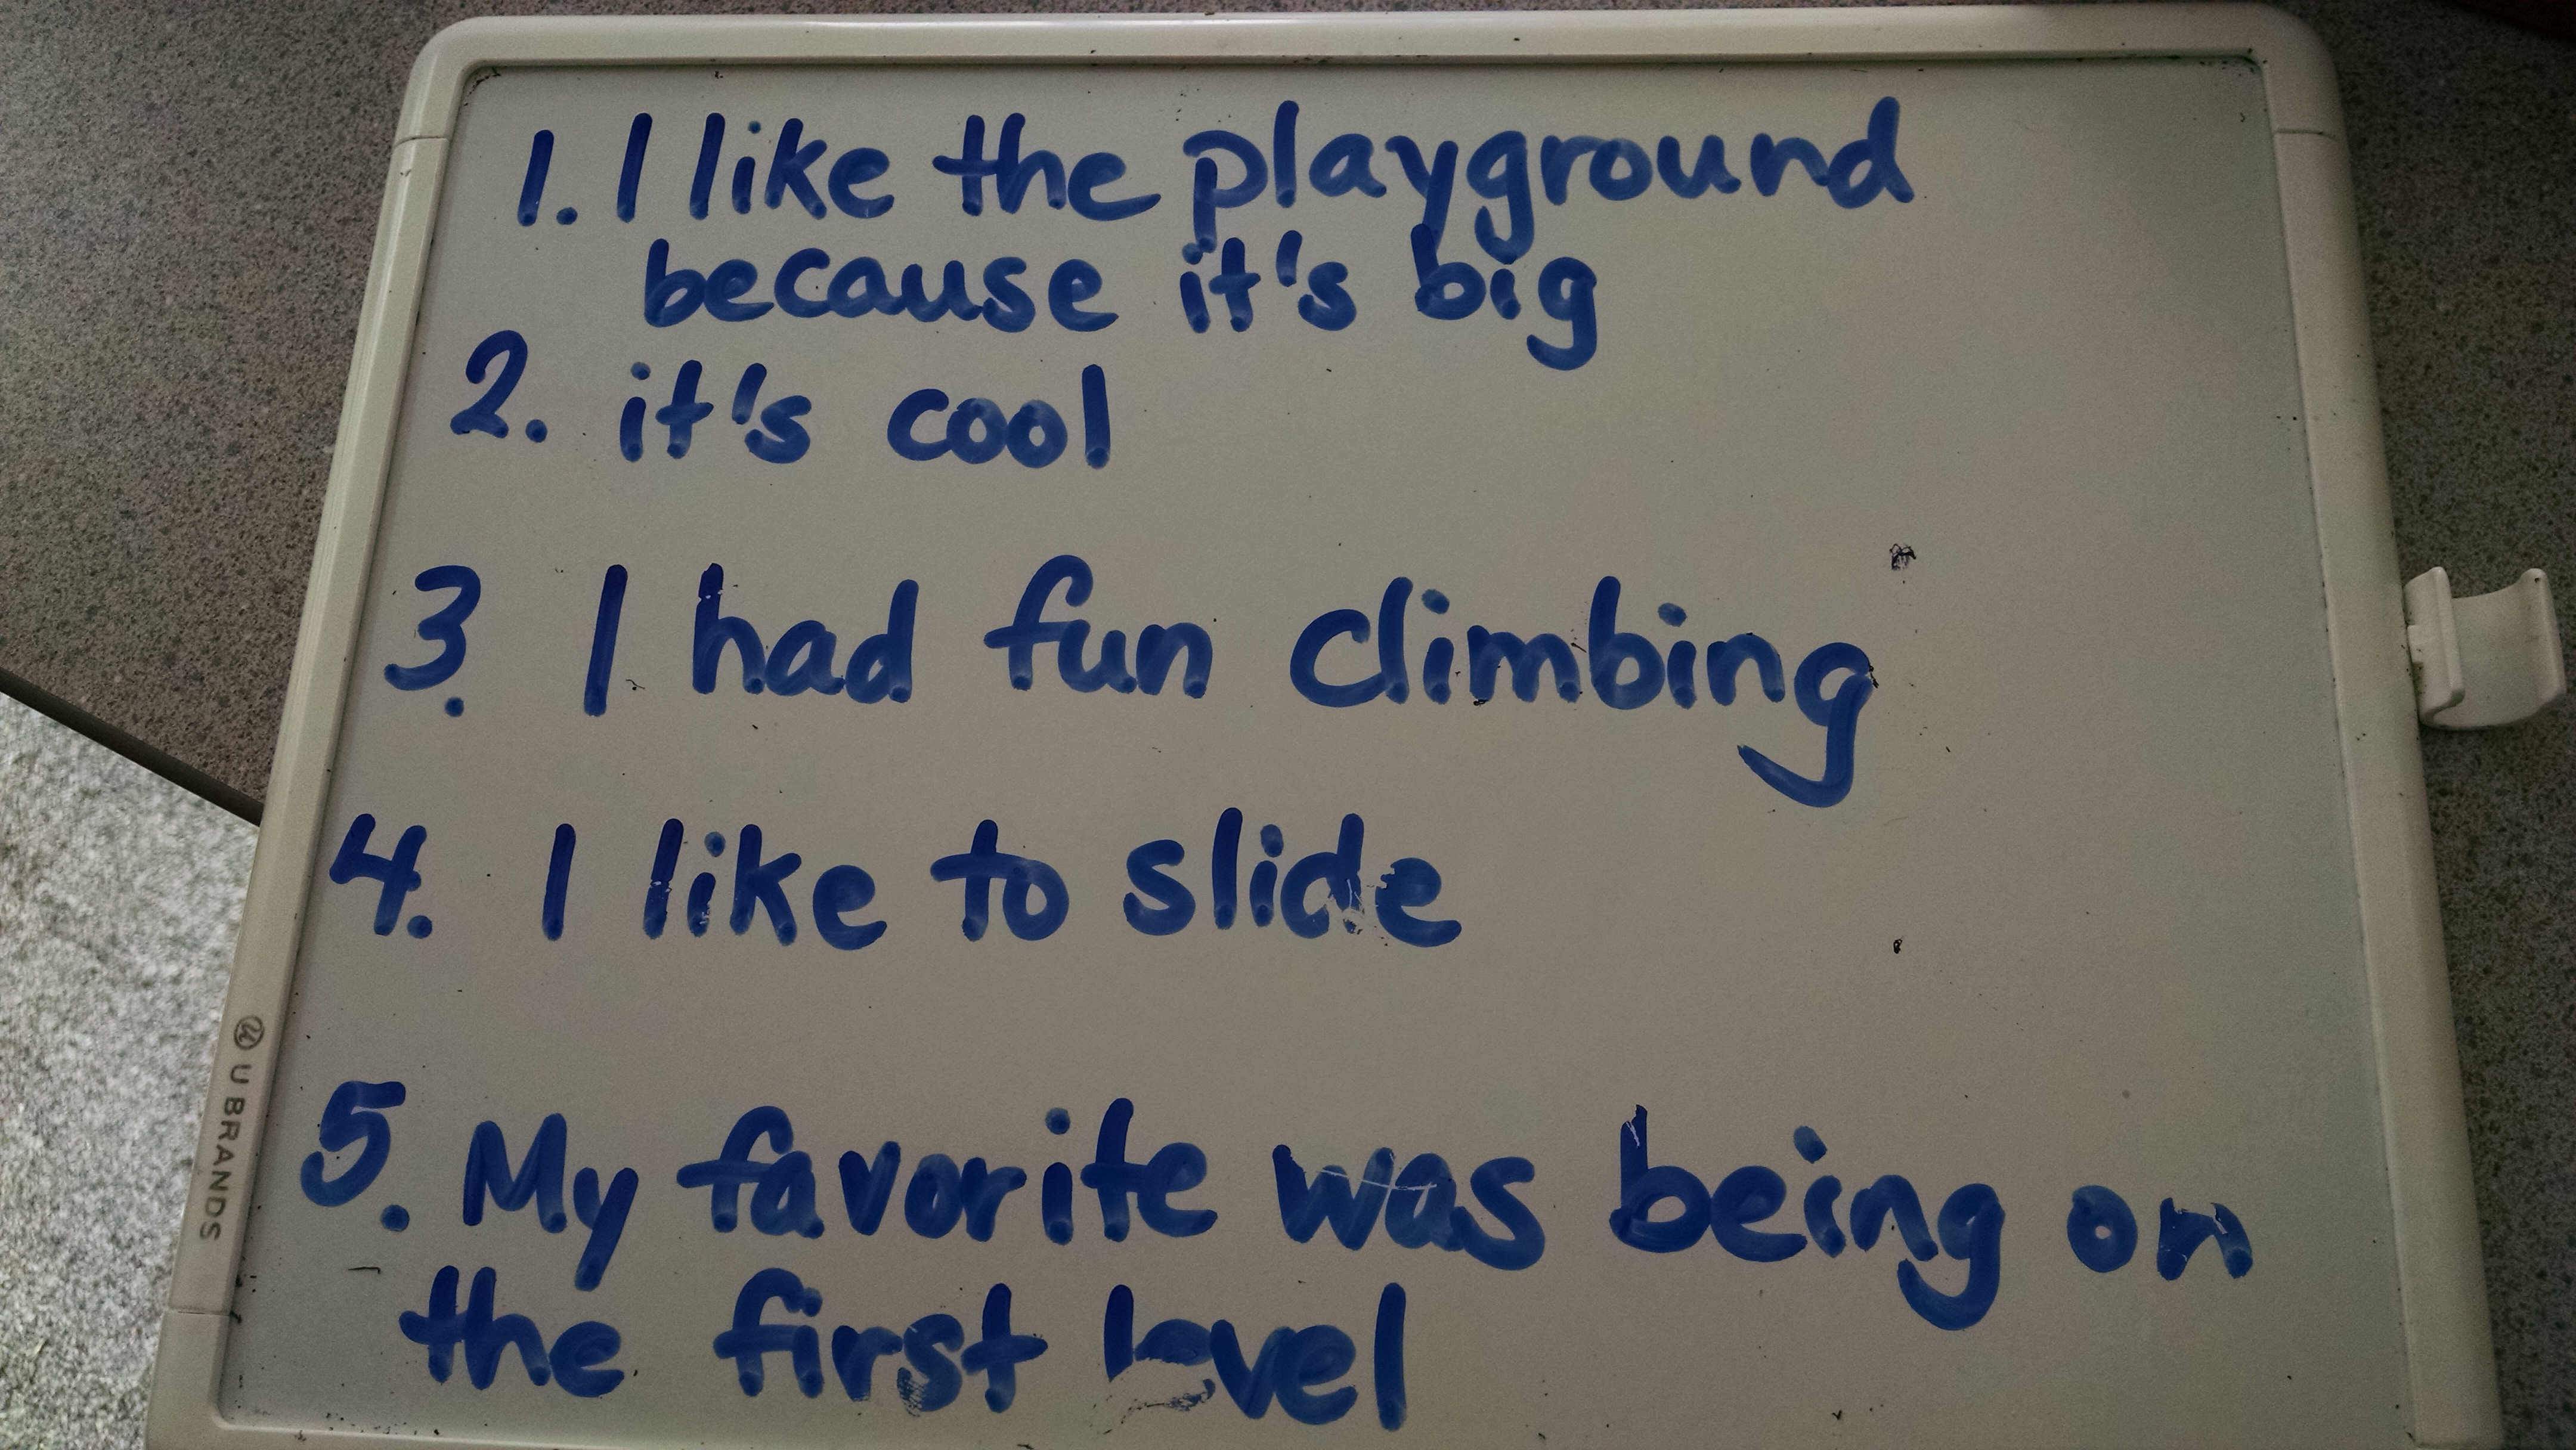 1. I like the playground
because it's big
2. it's cool
3. I had fun climbing
4. I like to slide
5. My favorite was being on
the first level
U BRANDS